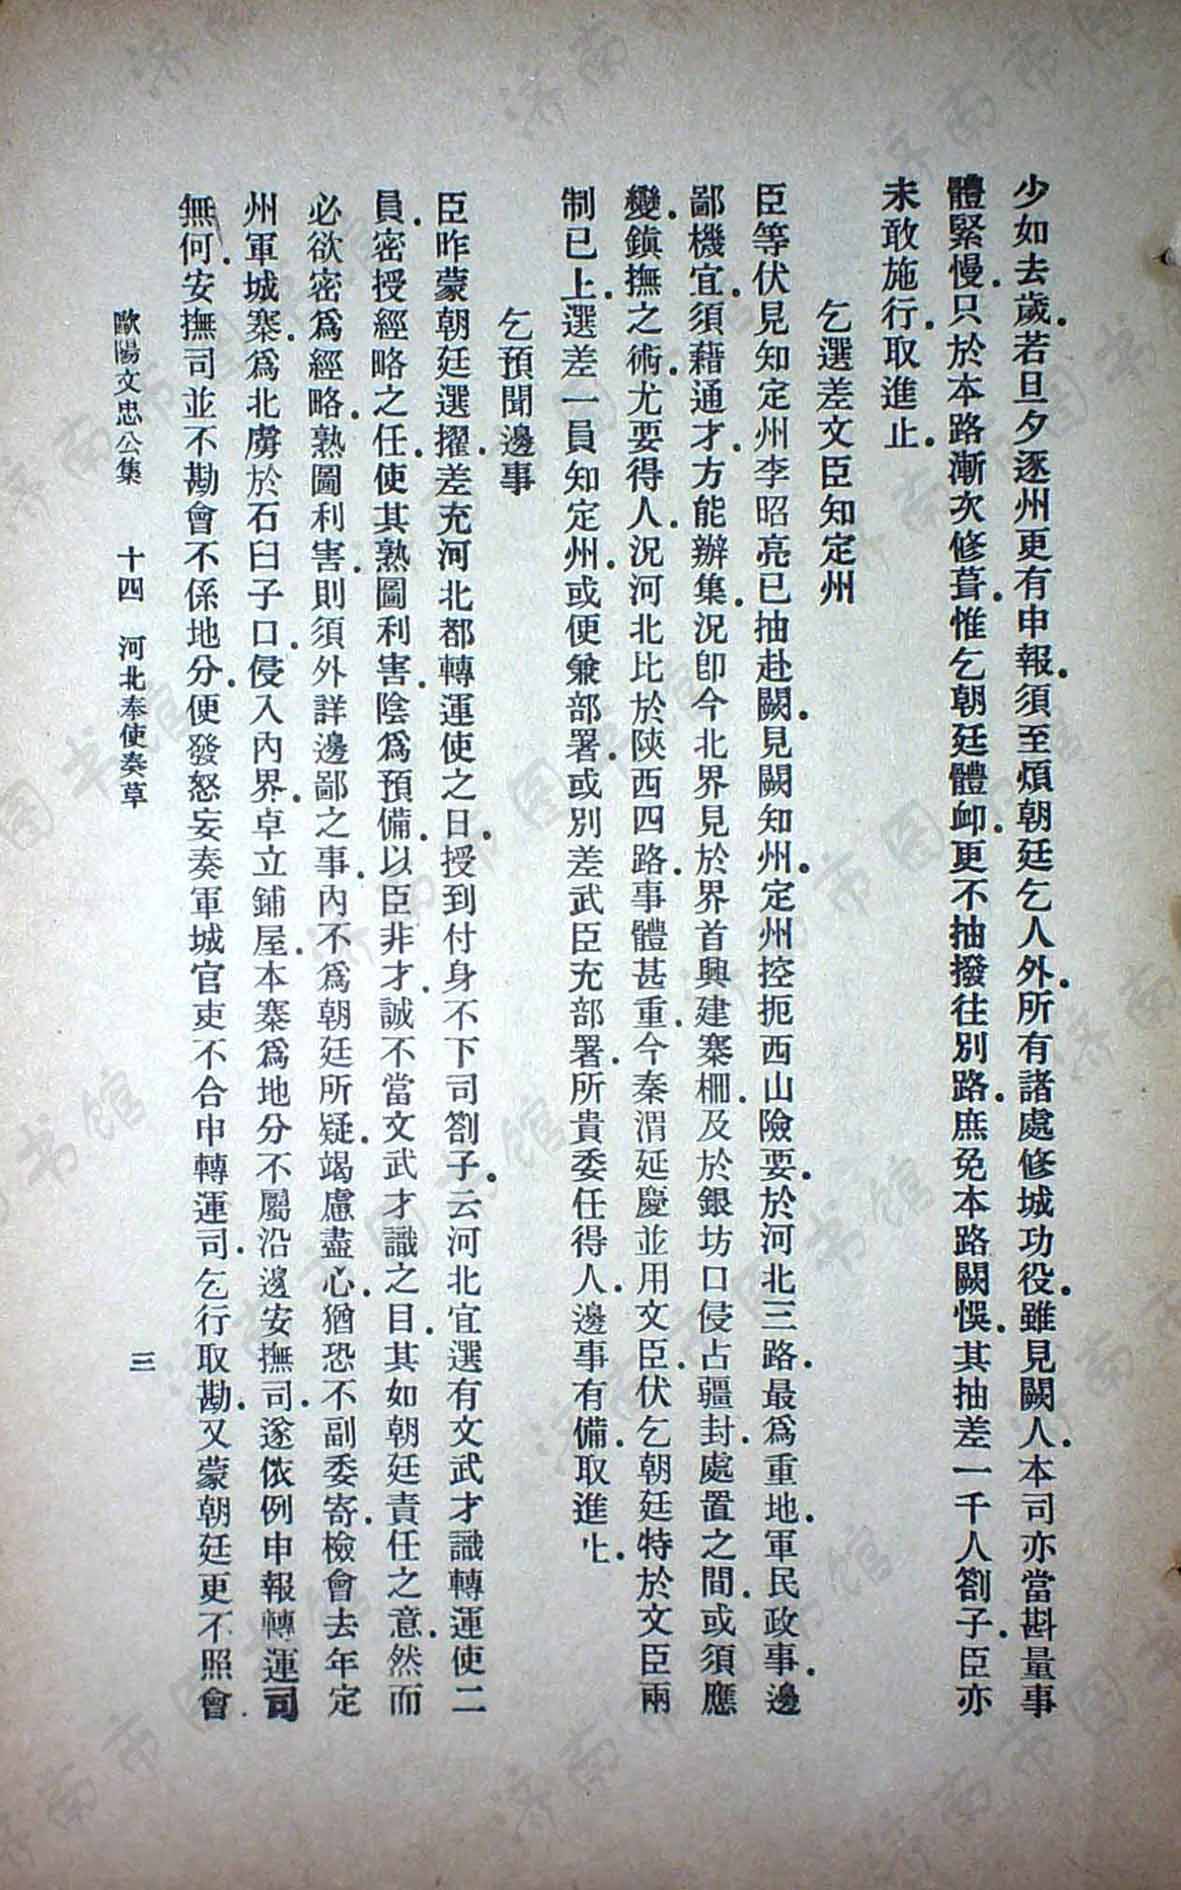 少如去歲．若旦夕逐州更有申報．須至煩朝廷乞人外．所有諸處修城功役．雖見闕人．本司亦當斟量事
體緊慢．只於本路漸次修葺．惟乞朝廷體卹．更不抽撥往別路．庶免本路闕悞．其抽差一千人劄子．臣亦
未敢施行．取進止．
乞選差文臣知定州
臣等伏見知定州李昭亮已抽赴闕．見闕知州．定州控扼西山險要．於河北三路．最爲重地．軍民政事．邊
鄙機宜．須藉通才．方能辦集．況卽今北界見於界首興建寨柵．及於銀坊口侵占疆封．處置之間．或須應
變．鎭撫之術．尤要得人．況河北比於陝西四路．事體甚重．今秦渭延慶並用文臣．伏乞朝廷特於文臣兩
制已上．選差一員知定州．或便兼部署．或別差武臣充部署．所貴委任得人．邊事有備．取進止．
乞預聞邊事
臣昨蒙朝廷選擢．差充河北都轉運使之日．授到付身不下司劄子．云河北宜選有文武才識轉運使二
員．密授經略之任．使其熟圖利害．陰爲預備．以臣非才．誠不當文武才識之目．其如朝廷責任之意．然而
必欲密爲經略．熟圖利害．則須外詳邊鄙之事．內不爲朝廷所疑．竭慮盡心．猶恐不副委寄．檢會去年定
州軍城寨．爲北虜於石臼子口．侵入內界．卓立鋪屋．本寨爲地分不屬沿邊安撫司．遂依例申報轉運司
無何．安撫司並不勘會不係地分．便發怒妄奏軍城官吏不合申轉運司．乞行取勘．又蒙朝廷更不照會．
歐陽文忠公集　十四　河北奉使奏草　三
济南市图书馆